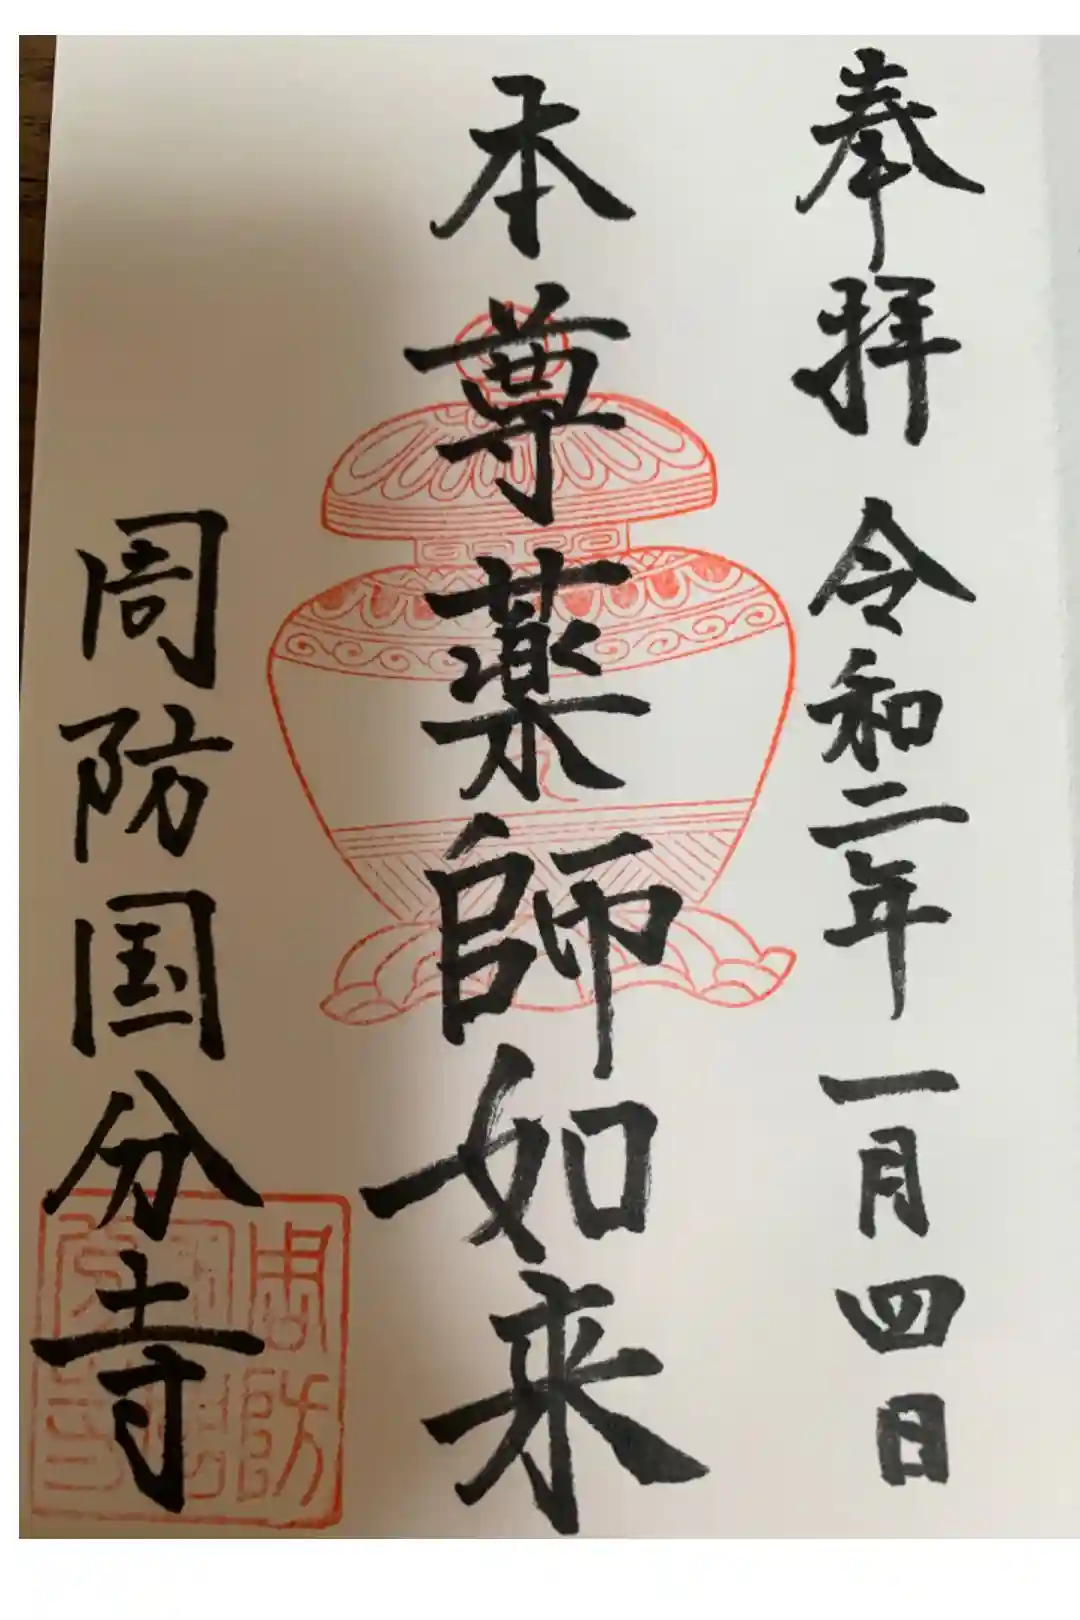 奉拝 令和二年一月四日
本尊薬師如来
周防国分寺
周防
國分寺